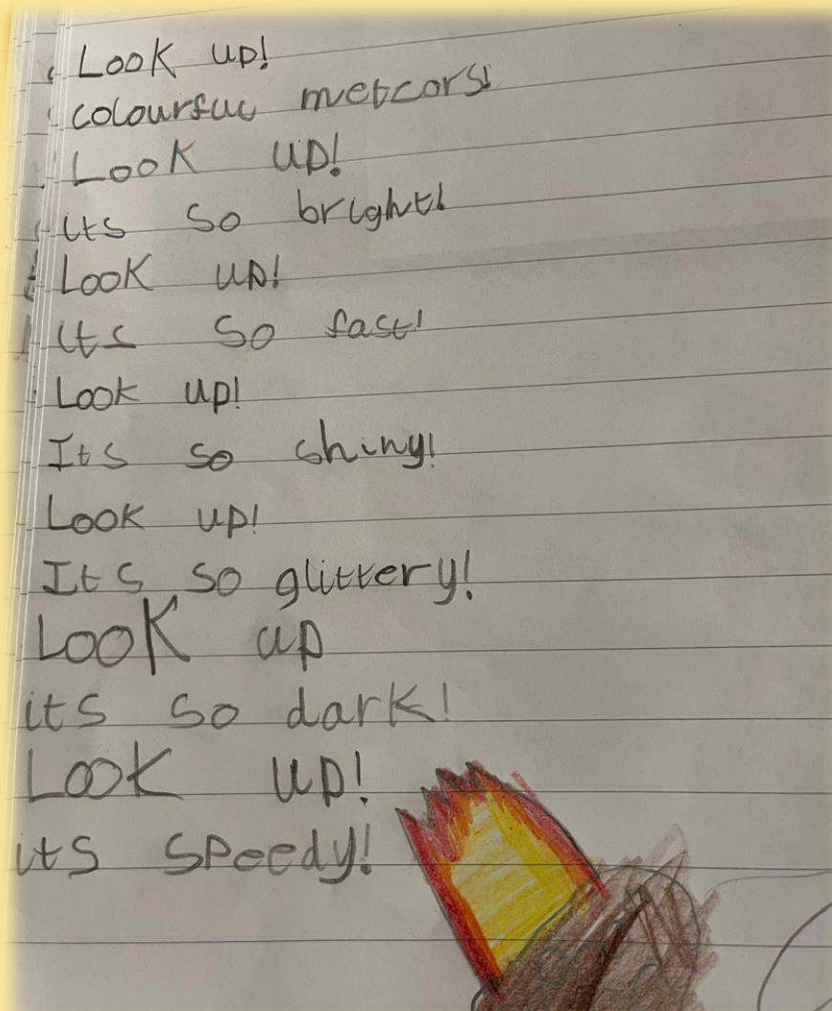 Look up!
colourful meteors!
Look up!
its so bright!
Look up!
its so fast!
Look up!
Its so shiny!
Look up!
Its so glittery!
Look up
its so dark!
Look up!
its speedy!